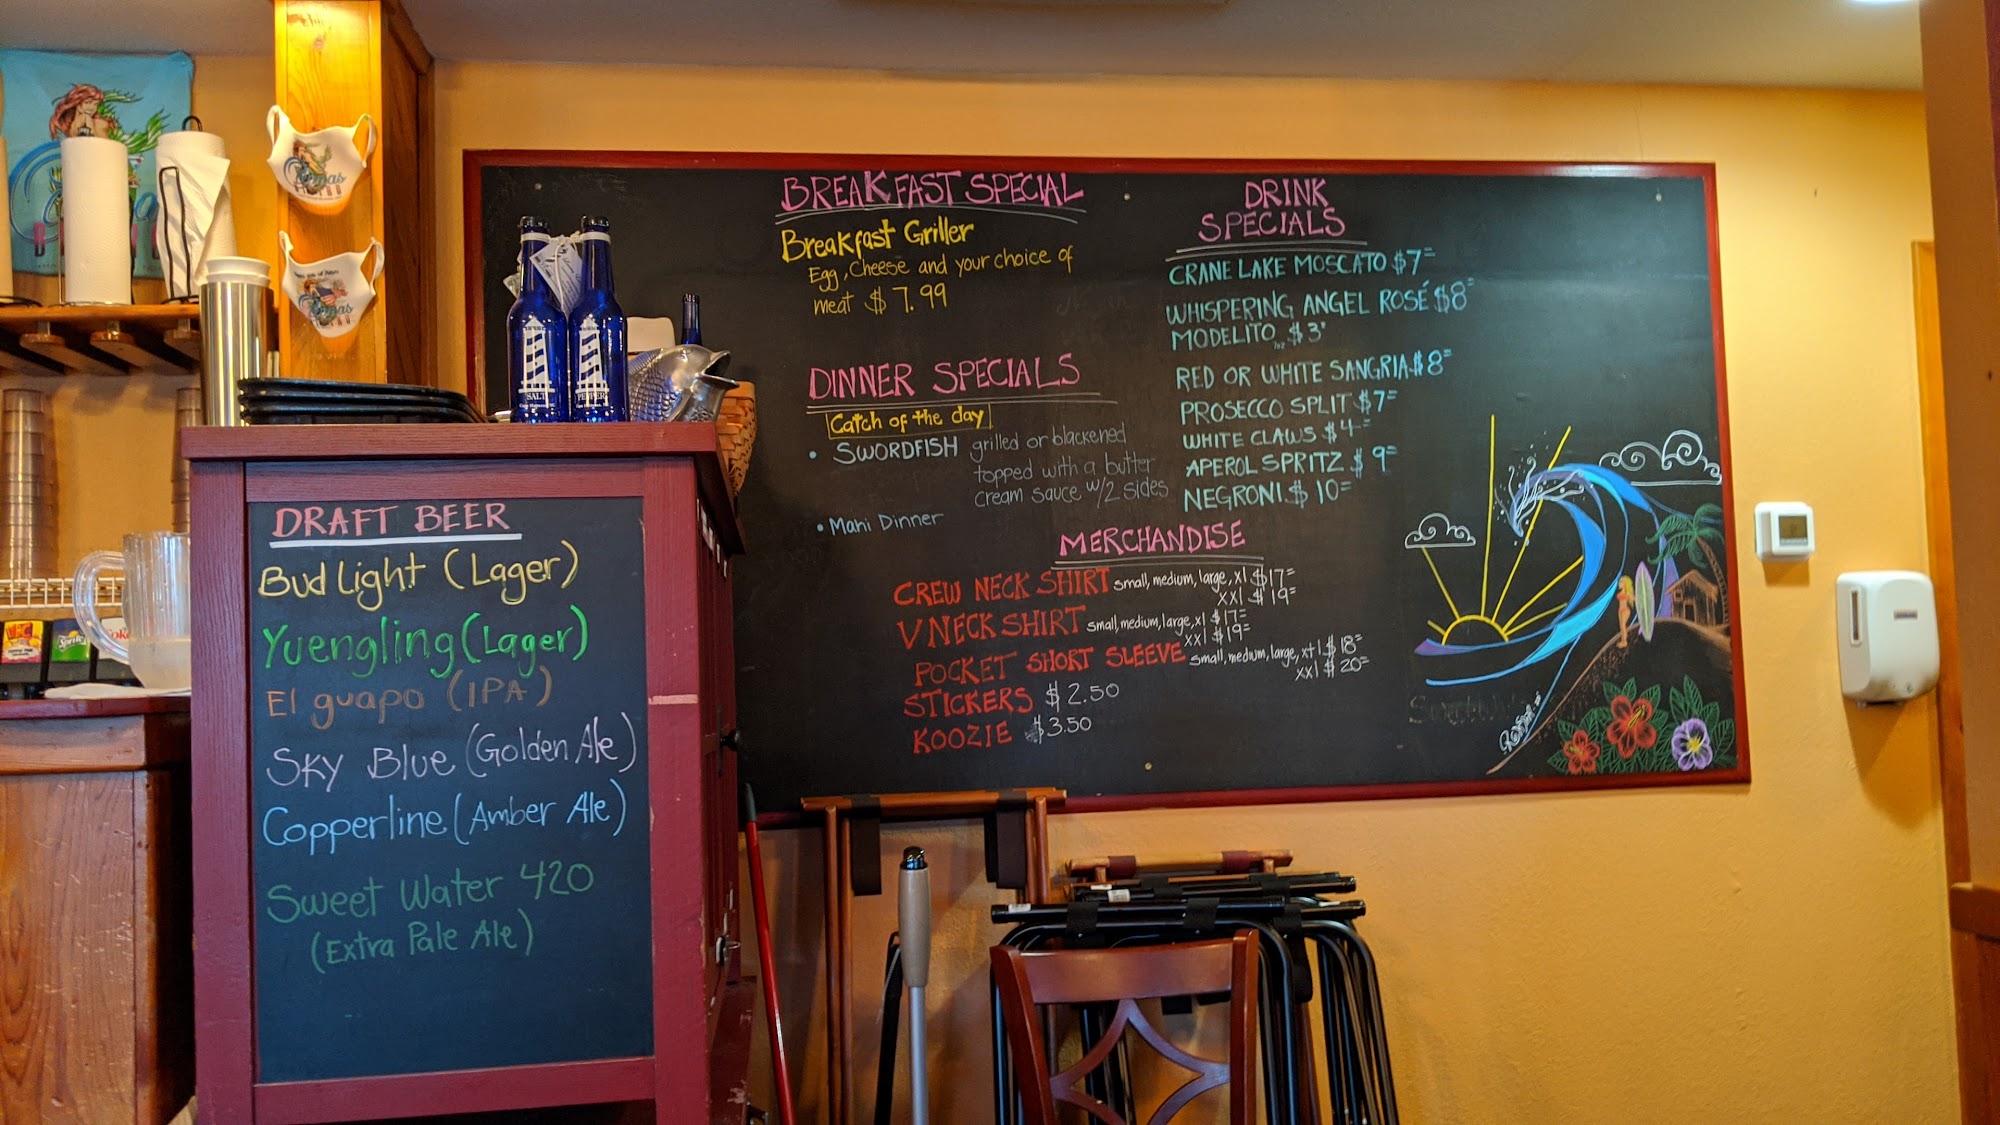 BREAKFAST SPECIAL
Breakfast Griller
Egg, Cheese and your choice of
meat $7.99
DINNER SPECIALS
Catch of the day
• SWORDFISH grilled or blackened
topped with a butter
cream sauce w/2 sides
• Mahi Dinner
DRINK
SPECIALS
CRANE LAKE MOSCATO $7
WHISPERING ANGEL ROSÉ $8
MODELITO 7oz $3
RED OR WHITE SANGRIA $8
PROSECCO SPLIT $7
WHITE CLAWS $4
APEROL SPRITZ $9
NEGRONI $10
MERCHANDISE
CREW NECK SHIRT small, medium, large, xl $17
xxl $19
V NECK SHIRT small, medium, large, xl $17
xxl $19
POCKET SHORT SLEEVE small, medium, large, xl $18
xxl $20
STICKERS $2.50
KOOZIE $3.50
DRAFT BEER
Bud Light (Lager)
Yuengling (Lager)
El guapo (IPA)
Sky Blue (Golden Ale)
Copperline (Amber Ale)
Sweet Water 420
(Extra Pale Ale)
SALT
PEPPER
Sprite